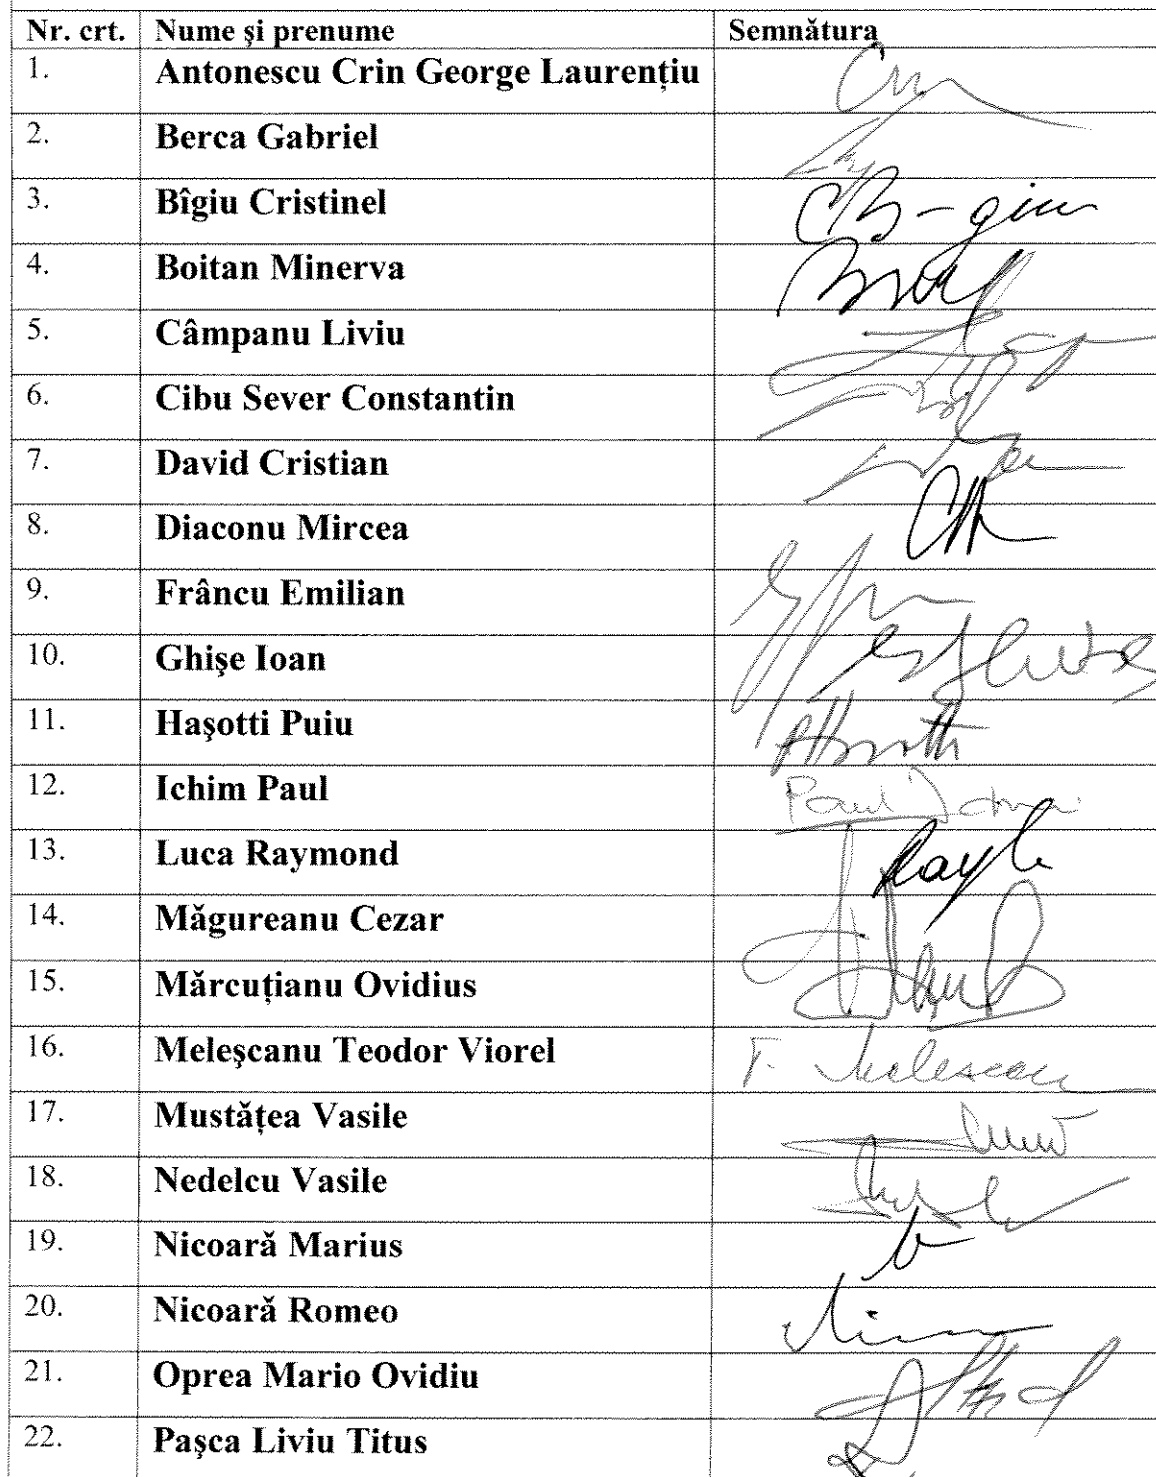 Nr. crt. Nume şi prenume Semnătura
1. Antonescu Crin George Laurenţiu
2. Berca Gabriel
3. Bîgiu Cristinel
4. Boitan Minerva
5. Câmpanu Liviu
6. Cibu Sever Constantin
7. David Cristian
8. Diaconu Mircea
9. Frâncu Emilian
10. Ghişe Ioan
11. Haşotti Puiu
12. Ichim Paul Paul
13. Luca Raymond
14. Măgureanu Cezar
15. Mărcuţianu Ovidius
16. Meleşcanu Teodor Viorel T. Melescanu
17. Mustăţea Vasile
18. Nedelcu Vasile
19. Nicoară Marius
20. Nicoară Romeo
21. Oprea Mario Ovidiu
22. Paşca Liviu Titus